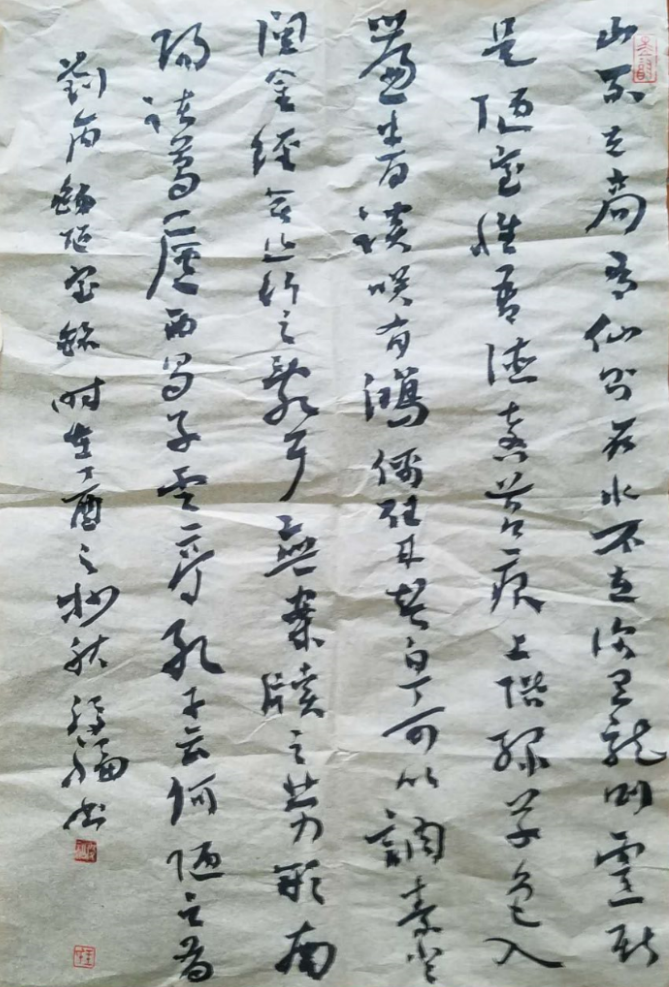 山不在高有仙則名水不在深有龍則靈斯
是陋室惟吾德馨苔痕上階緑草色入
簾青談笑有鴻儒往来白丁可以調素琴
閲金經無絲竹之亂耳無案牘之勞形南
陽諸葛廬西蜀子雲亭孔子云何陋之有
劉禹錫陋室銘時在丁酉之杪秋書